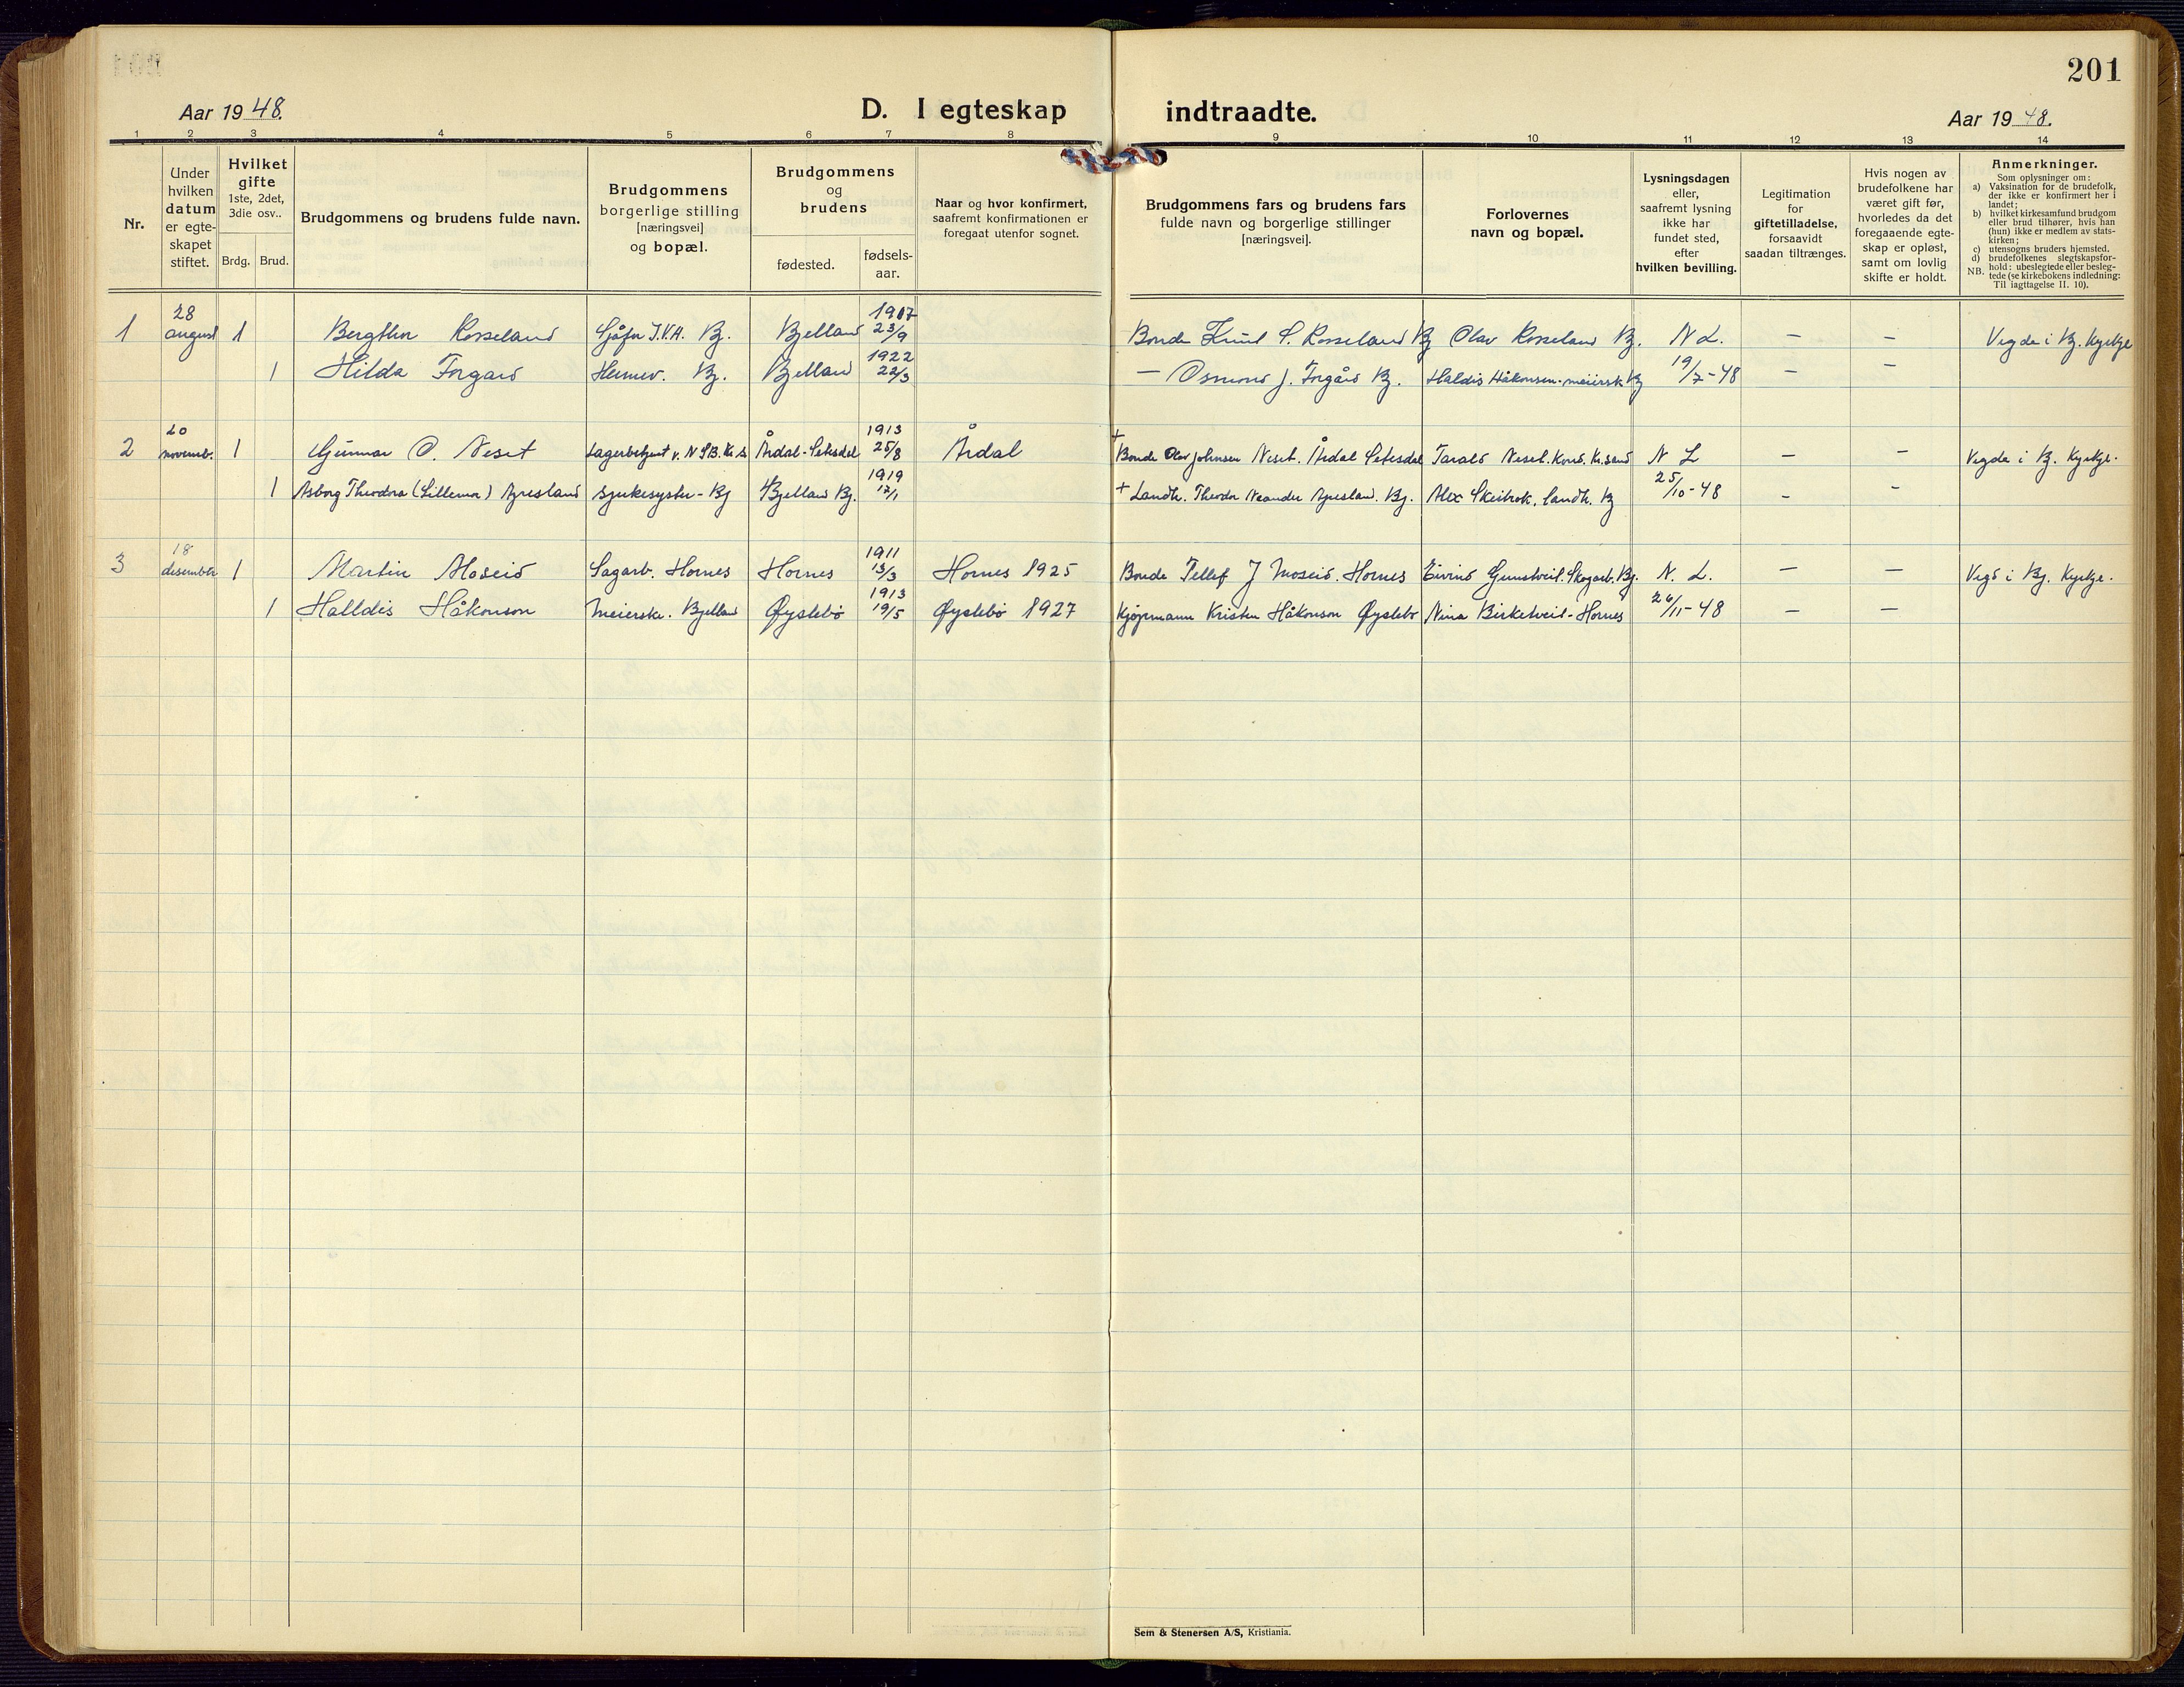 201
Aar 19 48.
D. I egteskap indtraadte.
Aar 19 48.
1 2 3 4 5 6 7 8 9 10 11 12 13 14
Nr.
Under
hvilken
datum
er egte-
skapet
stiftet.
Hvilket
gifte
1ste, 2det,
3die osv..
Brdg. Brud.
Brudgommens og brudens fulde navn.
Brudgommens
borgerlige stilling
[næringsvei]
og bopæl.
Brudgommens
og
brudens
fødested.
fødsels-
aar.
Naar og hvor konfirmert,
saafremt konfirmationen er
foregaat utenfor sognet.
Brudgommens fars og brudens fars
fulde navn og borgerlige stillinger
[næringsvei].
Forlovernes
navn og bopæl.
Lysningsdagen
eller,
saafremt lysning
ikke har
fundet sted,
efter
hvilken bevilling.
Legitimation
for
giftetilladelse,
forsaavidt
saadan tiltrænges.
Hvis nogen av
brudefolkene har
været gift før,
hvorledes da det
foregaaende egte-
skap er opløst,
samt om lovlig
skifte er holdt.
Anmerkninger.
Som oplysninger om:
a) Vaksination for de brudefolk,
der ikke er konfirmert her i
landet;
b) hvilket kirkesamfund brudgom
eller brud tilhører, hvis han
(hun) ikke er medlem av stats-
kirken;
c) utensogns bruders hjemsted.
d) brudefolkenes slegtskapsfor-
hold: ubeslegtede eller besleg-
NB. tede (se kirkebokens indledning:
Til iagttagelse II. 10).
1 28 august 1 Bergthor Rosseland Sjåfør I.V.A. Bj. Bjelland 1917 23/9 Bonde Knut S. Rosseland Bj Olav Rosseland Bj. N L. — — Vigde i Bj. kyrkje
1 Hilda Forgard Heimev. Bj. Bjelland 1922 22/3 — Osmond J. Forgård Bj. Haldis Håkonsen - meiersk. Bj 19/7-48 — —
2 20 novemb. 1 Gunnar O. Neset Lagerbetjent v. NSB. Kr.S Årdal - Setesdal 1913 25/8 Årdal + Bonde Olav Johnsen Neset. Årdal Setesdal Tarald Neset. Kond. Kr.sand N L — — Vigde i Bj. Kyrkje.
1 Asborg Theodora (Lillemor) Apresland sjukesyster - Bj Bjelland Bj. 1919 17/1 + Landh. Theodor Neander Apresland. Bj. Alex Skeibrok. landh. Bj 25/10-48 — —
3 18 desember 1 Martin Moseid Sagarb. Hornes Hornes 1911 13/3 Hornes 1925 Bonde Tellef J Moseid. Hornes Eivind Gunstveit. Skogarb. Bj. N. L. — — Vigd i Bj. Kyrkje.
1 Halldis Håkonson Meierske. Bjelland Øyslebø 1913 19/5 Øyslebø 1927 Kjøpmann Kristen Håkonson Øyslebø Nina Birketveit - Hornes 26/11-48 — —
Sem & Stenersen A/S, Kristiania.